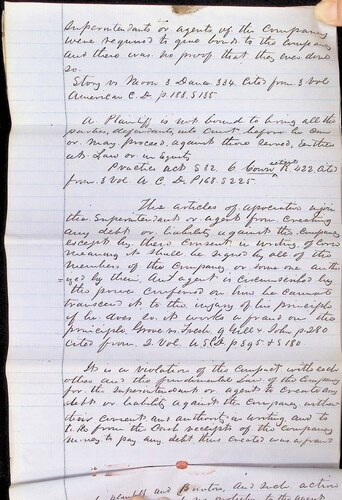 Superintendents or agents of the Company
were required to give bonds to the Company
and there was no proof that they ever done
so.
Story vs Moon 3 Dana 334. Cited from 3 Vol
American C. D. p. 188. S 135
A Plaintiff is not bound to bring all the
parties, defendants, into Court before he can
or may proceed against those served, either
at Law or in Equity
Practice act S 32. 6. Conn R 422 cited
from 3 Vol A C. D. P 168. S 225
The articles of association enjoin
the Superintendent or agent from creating
any debt or liability against the Company
except by their consent in writing of Corse
meaning it shall be signed by all of the
members of the Company or some one autho
= ized by them. An agent is circumscribed by
the power conferred on him he cannot
transcend it to the injury of his principle
if he does so it works a fraud on the
principle. Grove vs 9 Gill & John p 280
cited from 2 Vol U S p 595 + S 180
It is a violation of the Compact with each
other and the fundamental Law of the Company
for the Superintendent or agent to Create any
debt or liability against the Company without
their consent and authority in writing and to
take from the Cash receipts of the Company
money to pay any debt thus created was a fraud
plaintiff and and such action
to the agent